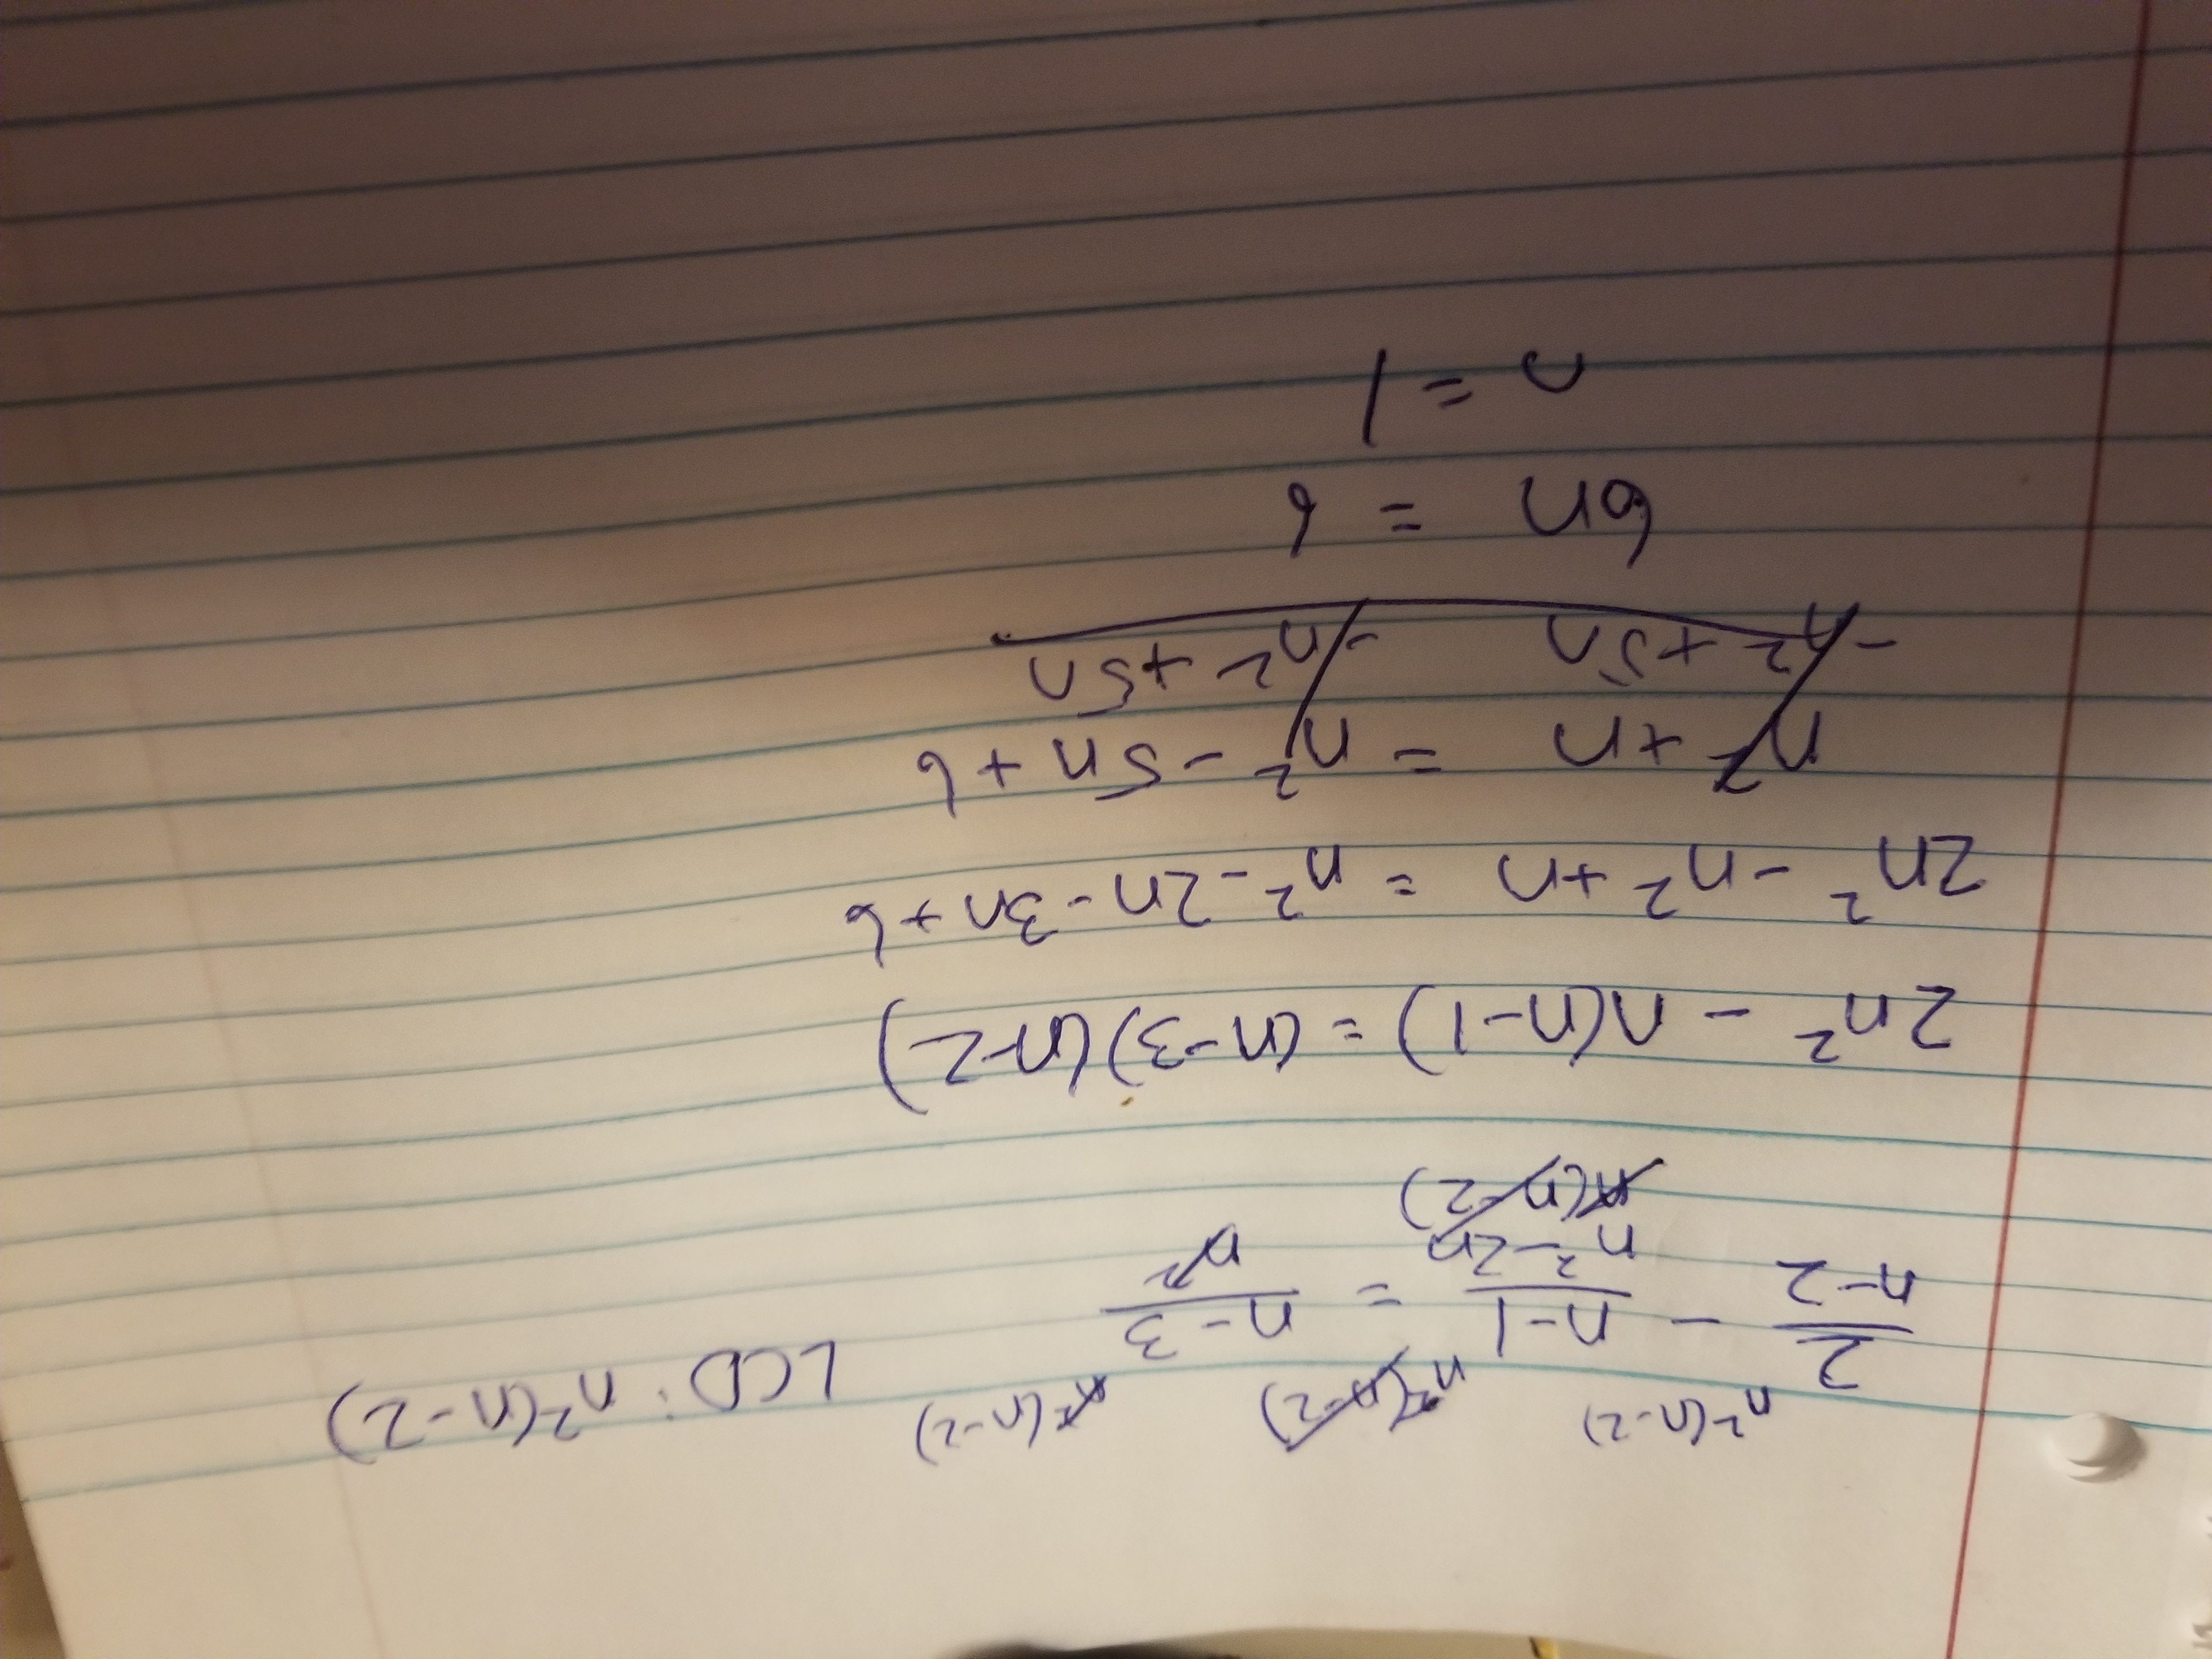 n²(n-2) n²(n-2) n²(n-2) LCD: n²(n-2)
2/(n-2) - (n-1)/(n²-2n) = (n-3)/n²
n(n-2)
2n² - n(n-1) = (n-3)(n-2)
2n² - n² + n = n² - 2n - 3n + 6
n² + n = n² - 5n + 6
-n² + 5n -n² + 5n
6n = 6
n = 1